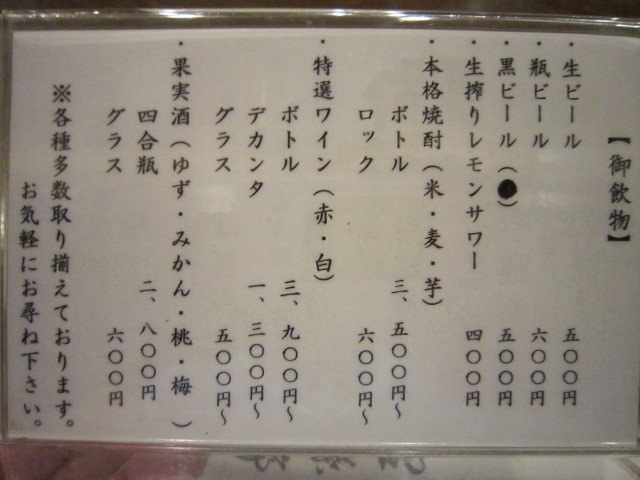 【御飲物】
・生ビール 五〇〇円
・瓶ビール 六〇〇円
・黒ビール(●) 五〇〇円
・生搾りレモンサワー 四〇〇円
・本格焼酎(米・麦・芋)
ボトル 三、五〇〇円~
ロック 六〇〇円~
・特選ワイン(赤・白)
ボトル 三、九〇〇円~
デカンタ 一、三〇〇円~
グラス 五〇〇円~
・果実酒(ゆず・みかん・桃・梅)
四合瓶 二、八〇〇円
グラス 六〇〇円
※各種多数取り揃えております。
お気軽にお尋ね下さい。